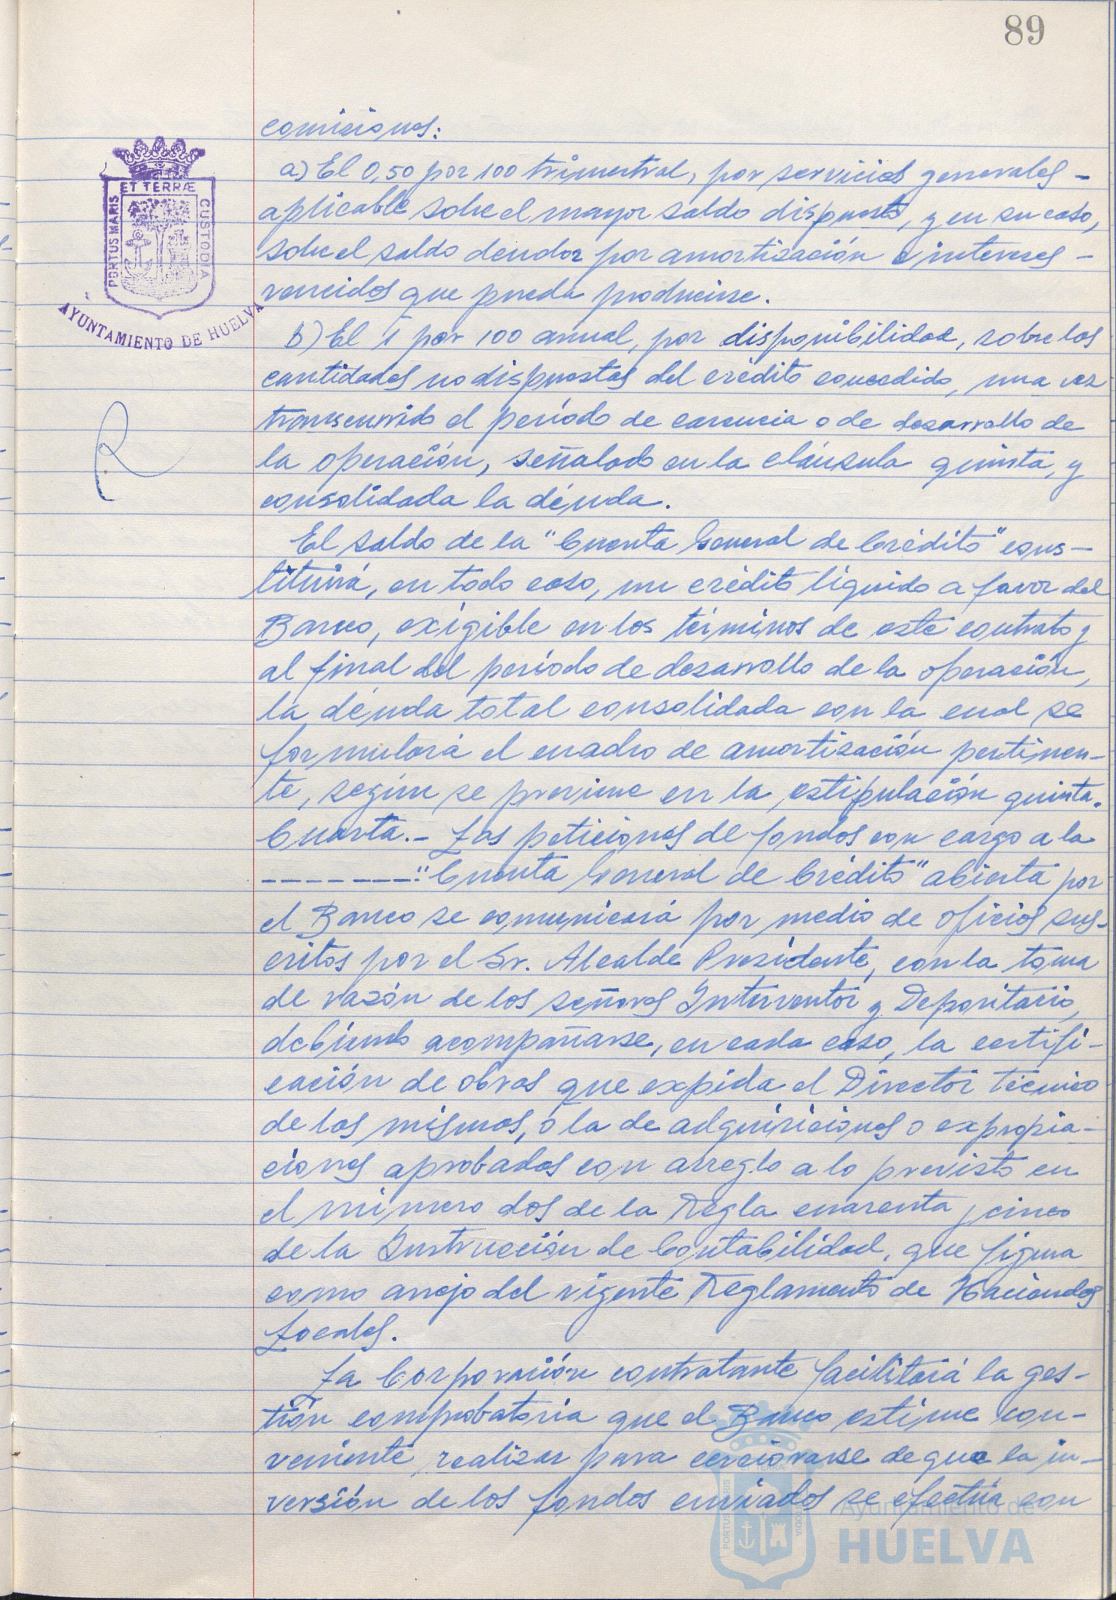 89
comisiones:
a) El 0,50 por 100 trimestral, por servicios generales -
aplicable sobre el mayor saldo dispuesto, y en su caso,
sobre el saldo deudor por amortización e intereses -
vencidos que pueda producirse.
b) El 1 por 100 anual, por disponibilidad, sobre las
cantidades no dispuestas del crédito concedido, una vez
transcurrido el período de carencia o de desarrollo de
la operación, señalado en la cláusula quinta, y
consolidada la deuda.
El saldo de la "Cuenta General de Crédito" cons-
tituirá, en todo caso, un crédito líquido a favor del
Banco, exigible en los términos de este contrato y
al final del período de desarrollo de la operación,
la deuda total consolidada con la cual se
formulará el cuadro de amortización pertinen-
te, según se previene en la estipulación quinta.
Cuarta.- Las peticiones de fondos con cargo a la
-------- "Cuenta General de Crédito" abierta por
el Banco se comunicará por medio de oficios sus-
critos por el Sr. Alcalde Presidente, con la toma
de razón de los señores Interventor y Depositario,
debiendo acompañarse, en cada caso, la certifi-
cación de obras que expida el Director técnico
de las mismas, o la de adquisiciones o expropia-
ciones aprobadas con arreglo a lo previsto en
el número dos de la Regla cuarenta y cinco
de la Instrucción de Contabilidad, que figura
como anejo del vigente Reglamento de Haciendas
Locales.
La Corporación contratante facilitará la ges-
tión comprobatoria que el Banco estime con-
veniente realizar para cerciorarse de que la in-
versión de los fondos enviados se efectúa con
PORTUS MARIS ET TERRÆ CUSTODIA
AYUNTAMIENTO DE HUELVA
Ayuntamiento de
HUELVA